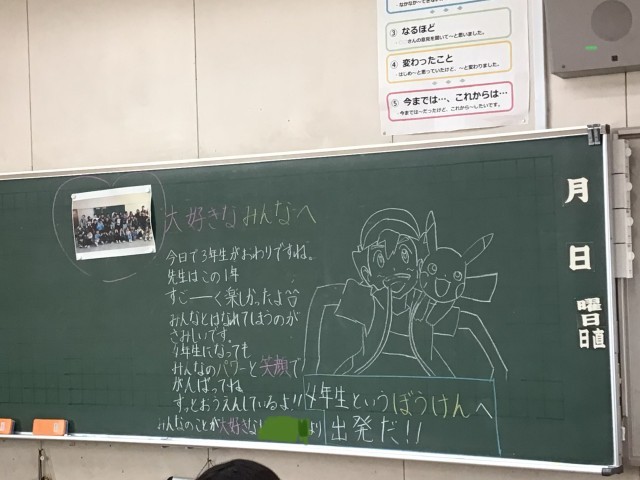 ③ なるほど
さんの意見を聞いて〜と思いました。
④ 変わったこと
はじめ〜と思っていたけど、〜と変わりました。
⑤ 今までは…、これからは…
今までは〜だったけど、これから〜したいです。
大好きなみんなへ
今日で3年生がおわりですね。
先生はこの1年
すご――く楽しかったよ
みんなとはなれてしまうのが
さみしいです。
4年生になっても
みんなのパワーと笑顔で
がんばってね
ずっとおうえんしているよ!!
みんなのことが大好きな
より
4年生というぼうけんへ
出発だ!!
月
日
曜日
日直